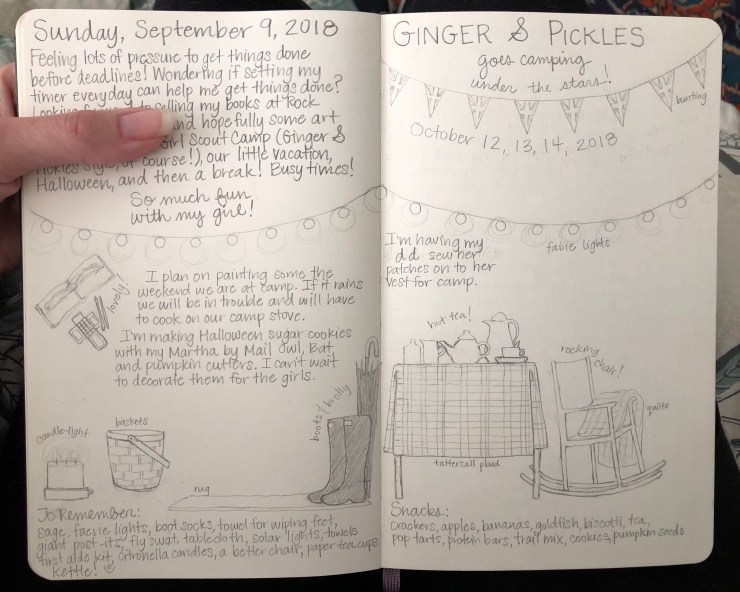 Sunday, September 9, 2018
Feeling lots of pressure to get things done
before deadlines! Wondering if setting my
timer everyday can help me get things done?
selling my books at Rock
and hopefully some art
Girl Scout Camp (Ginger &
Pickles style, of course!), our little vacation,
Halloween, and then a break! Busy times!
So much fun
with my girl!
lovely!
I plan on painting some the
weekend we are at camp. If it rains
we will be in trouble and will have
to cook on our camp stove.
I'm making Halloween sugar cookies
with my Martha by Mail Owl, Bat,
and pumpkin cutters. I can't wait
to decorate them for the girls.
candle-light
baskets
boots & brolly
rug
To Remember:
sage, faerie lights, boot socks, towel for wiping feet,
giant post-its, fly swat, tablecloth, solar lights, towels
first aide kit, citronella candles, a better chair, paper tea cups
kettle!
GINGER & PICKLES
goes camping
under the stars!
bunting
October 12, 13, 14, 2018
I'm having my
d.d. sew her
patches on to her
vest for camp.
fairie lights
hot tea!
rocking
chair!
quilts
tattersall plaid
Snacks:
crackers, apples, bananas, goldfish, biscotti, tea,
pop tarts, protein bars, trail mix, cookies, pumpkin seeds